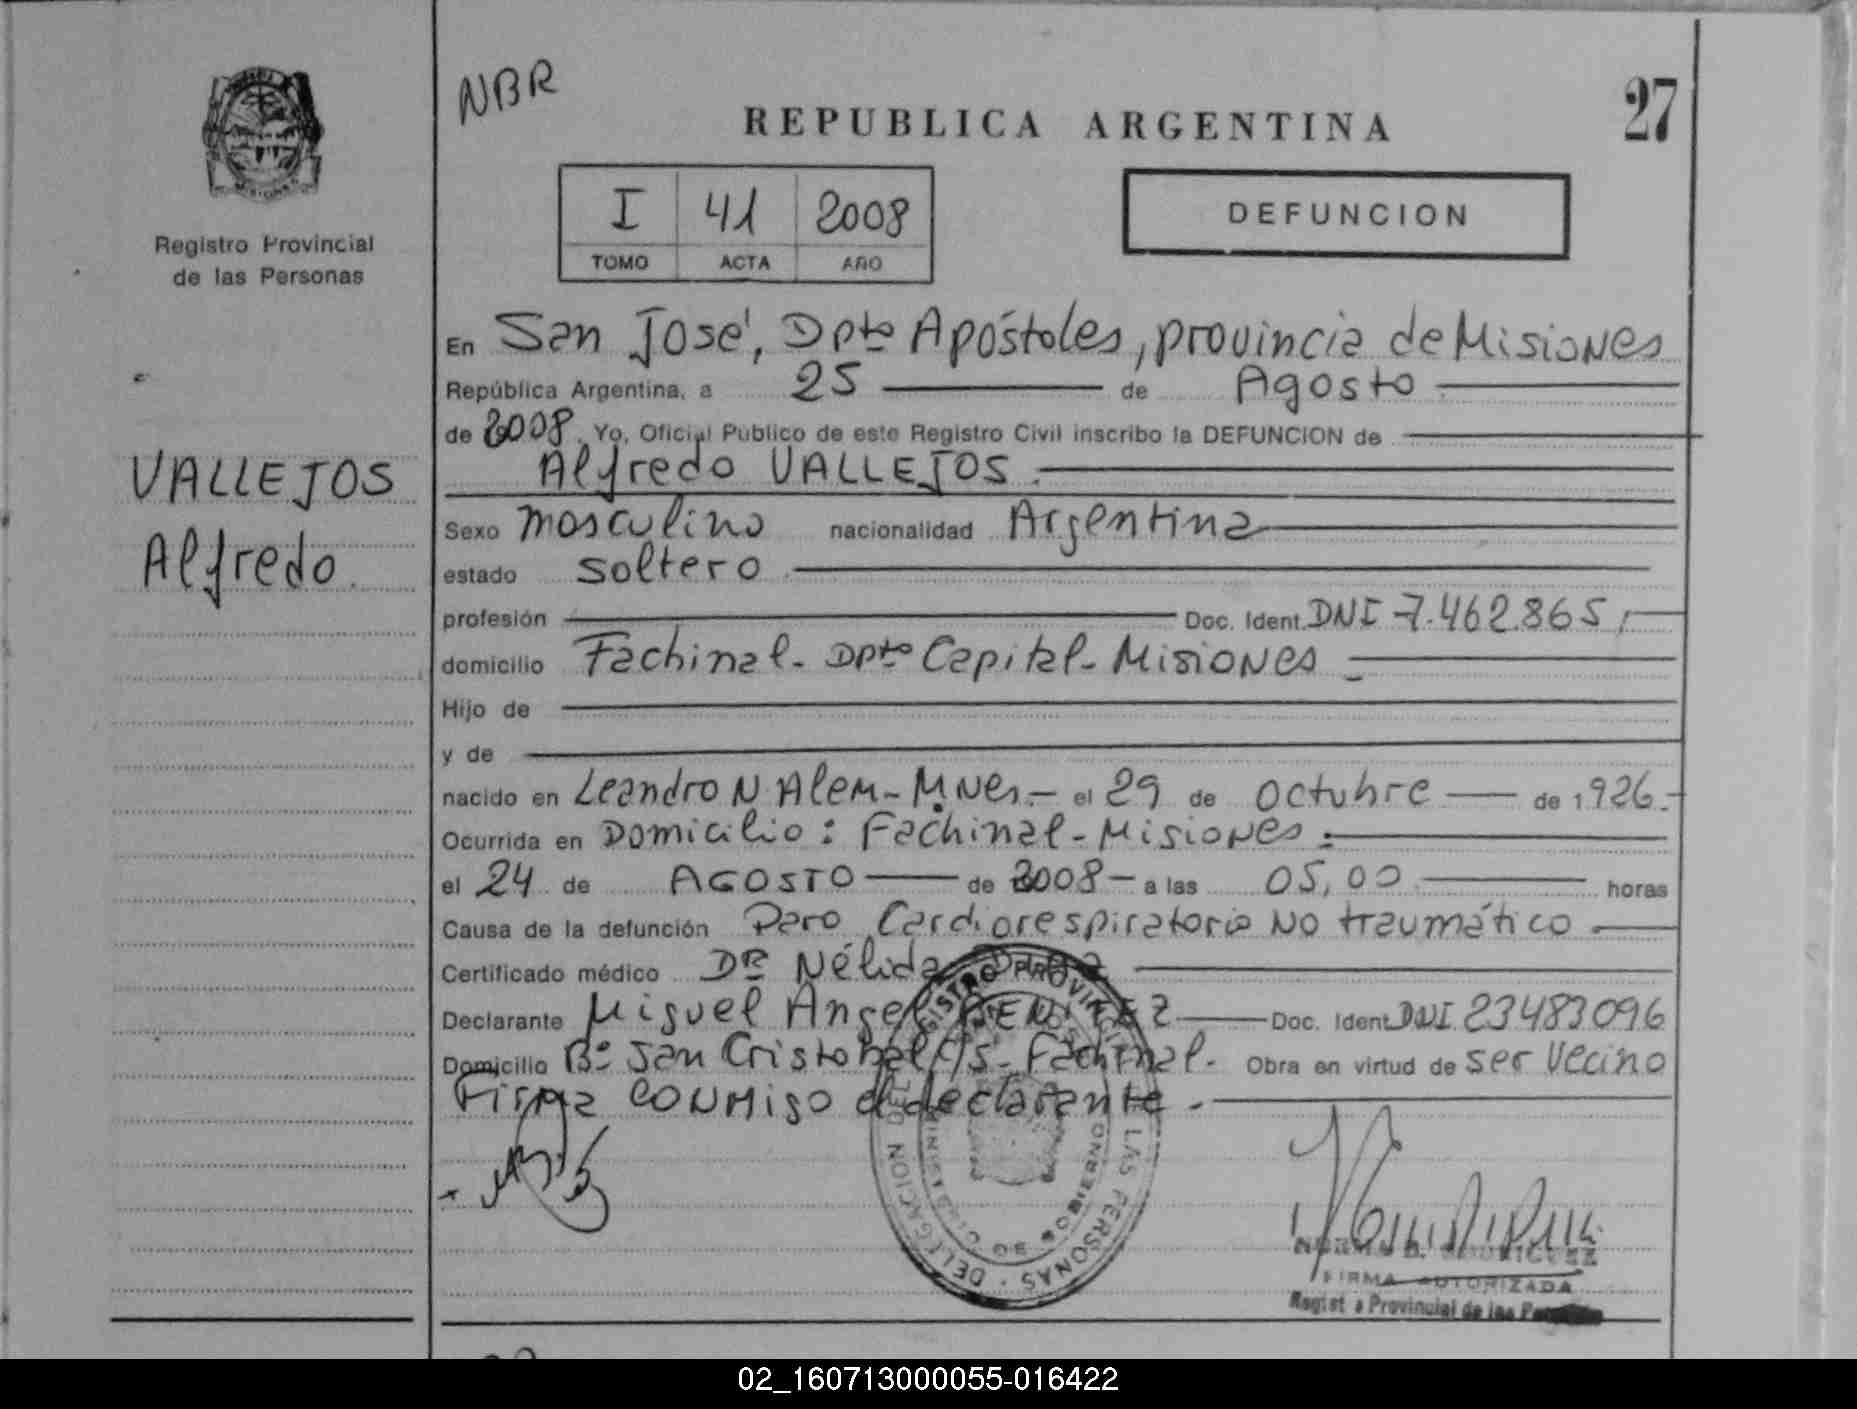 NBR
REPUBLICA ARGENTINA
27
MISIONES
Registro Provincial
de las Personas
I 41 2008
TOMO ACTA AÑO
DEFUNCION
VALLEJOS
Alfredo.
En San José, Dpto Apóstoles, provincia de Misiones
República Argentina, a 25 de Agosto
de 2008. Yo, Oficial Público de este Registro Civil inscribo la DEFUNCION de
Alfredo VALLEJOS.
Sexo masculino nacionalidad Argentina
estado soltero
profesión Doc. Ident. DNI 7.462.865,
domicilio Fachinal - Dpto Capital - Misiones
Hijo de
y de
nacido en Leandro N. Alem - Mnes. - el 29 de octubre de 1926.-
Ocurrida en Domicilio: Fachinal - Misiones.
el 24 de AGOSTO de 2008 - a las 05,00 horas
Causa de la defunción Paro Cardiorespiratorio NO traumático
Certificado médico Dra Nélida
Declarante Miguel Angel BENITEZ Doc. Ident. DNI 23483096
Domicilio Bº San Cristobal C/S - Fachinal. Obra en virtud de ser Vecino
Firma CONMigo el declarante.-
DELEGACION DEL REGISTRO PROVINCIAL DE LAS PERSONAS
MINISTERIO DE GOBIERNO
FIRMA AUTORIZADA
Provincial de las
02_160713000055-016422